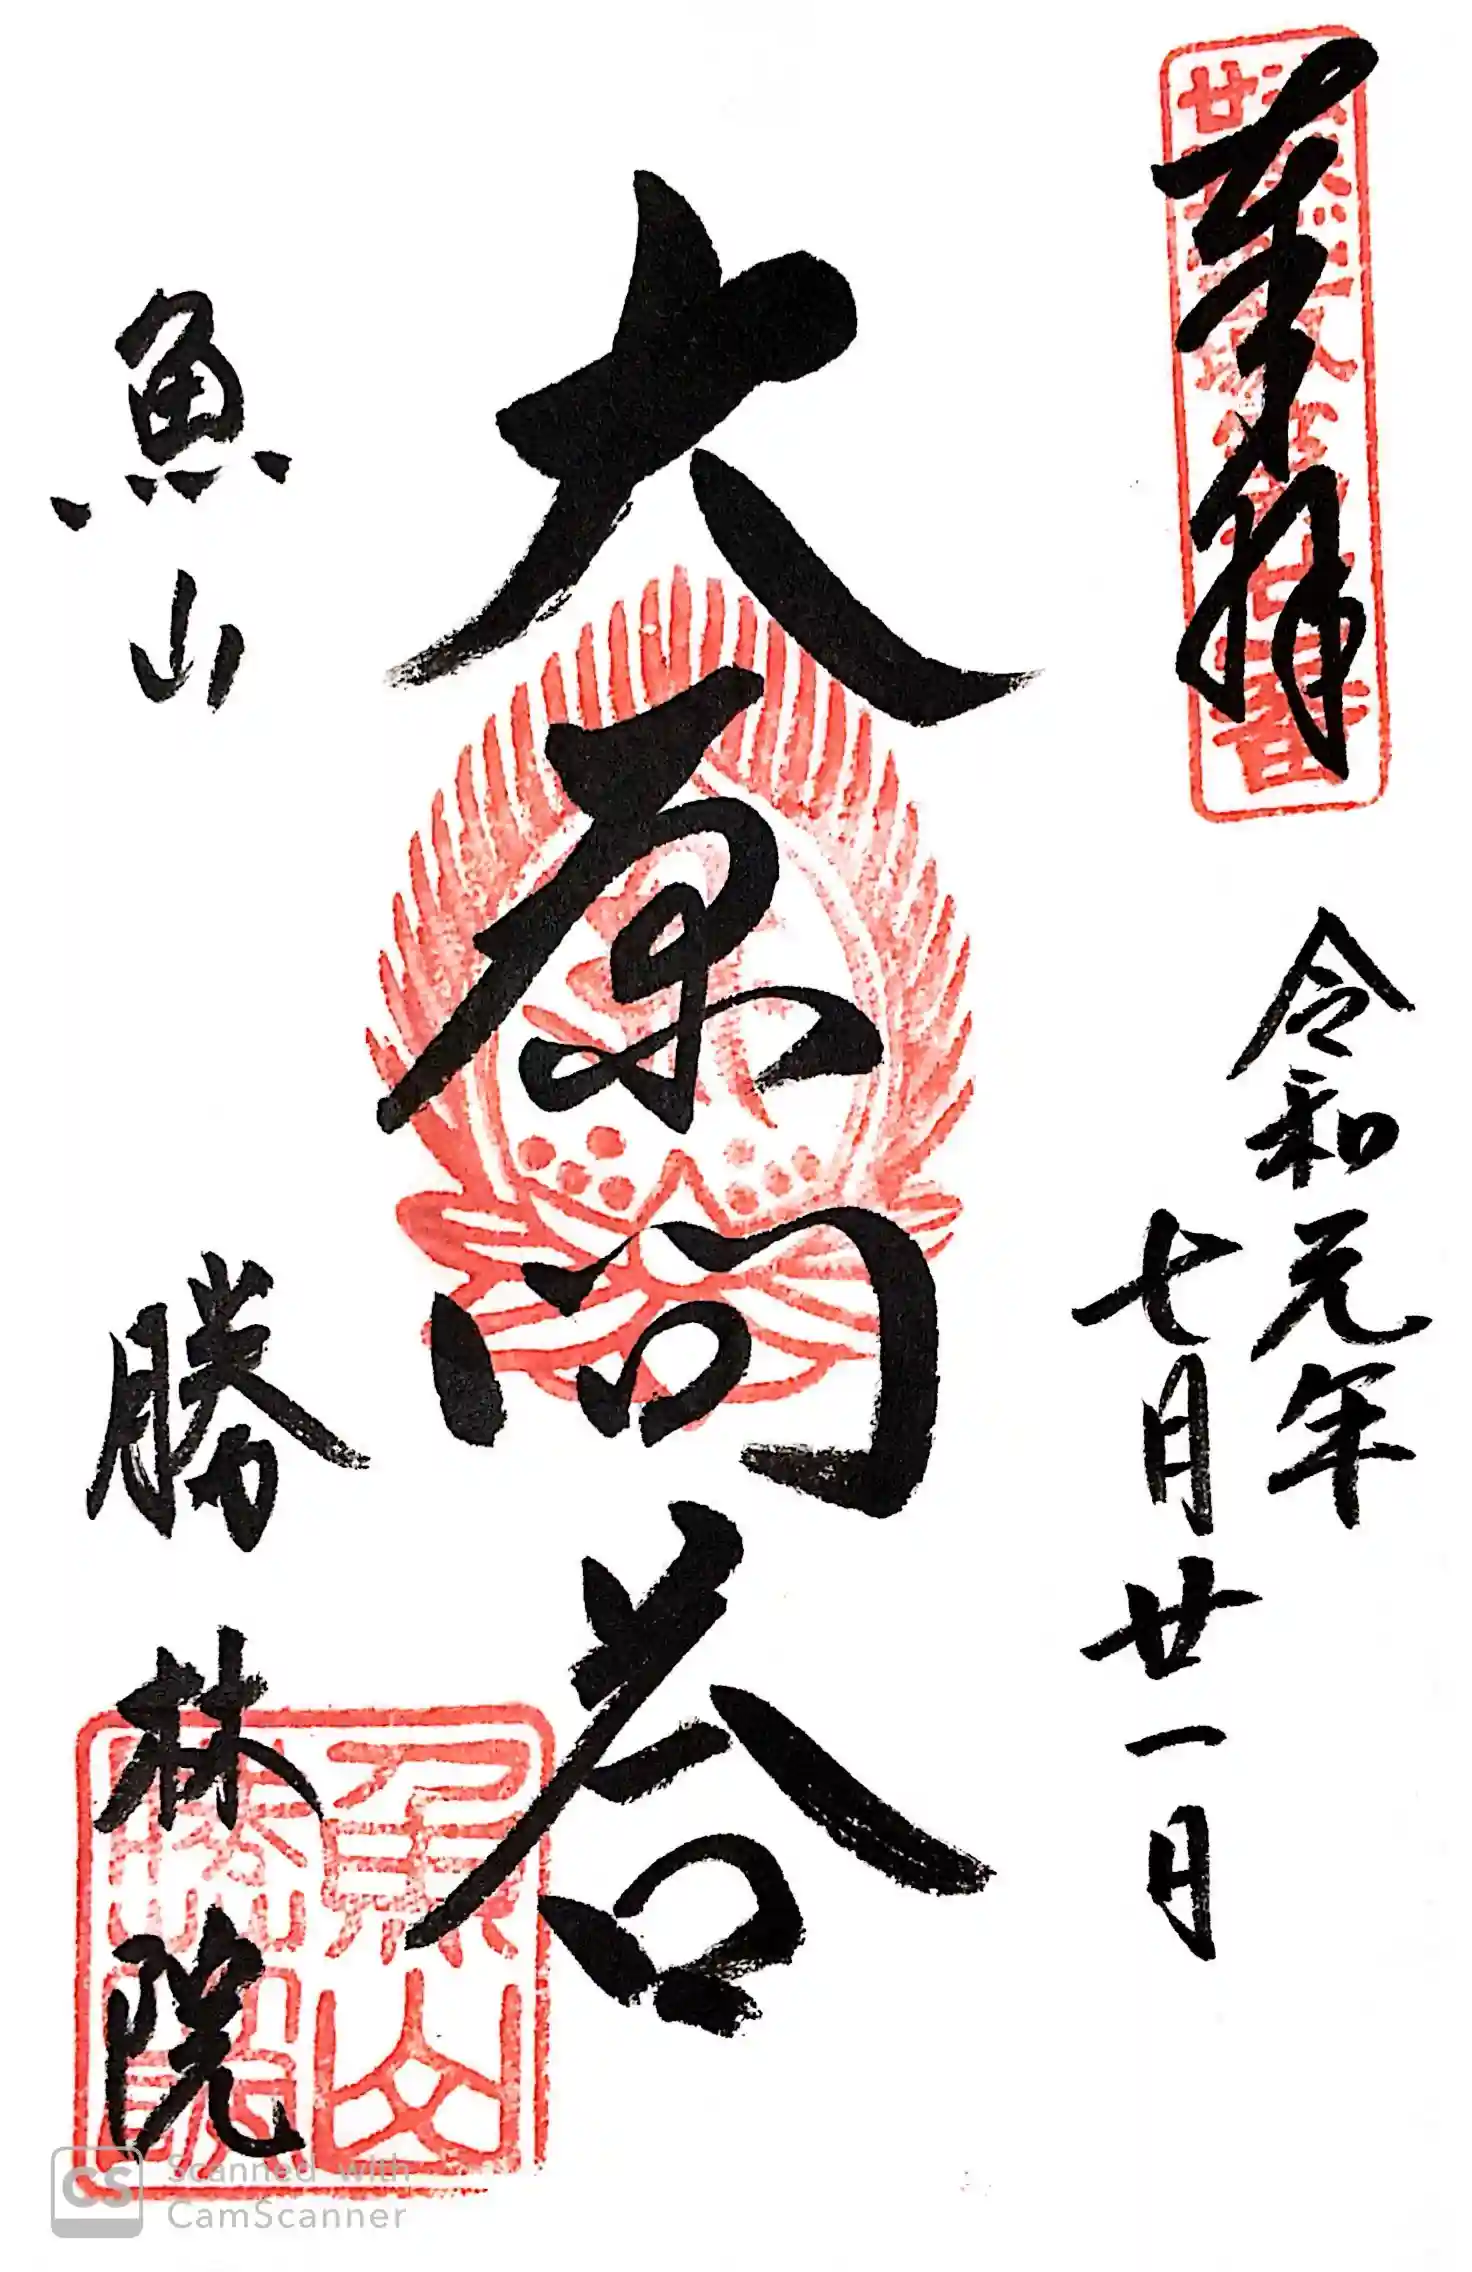 奉拝
令和元年
七月廿一日
大原問答
魚山
勝林院
魚山
勝林院
Scanned with
CamScanner
CS